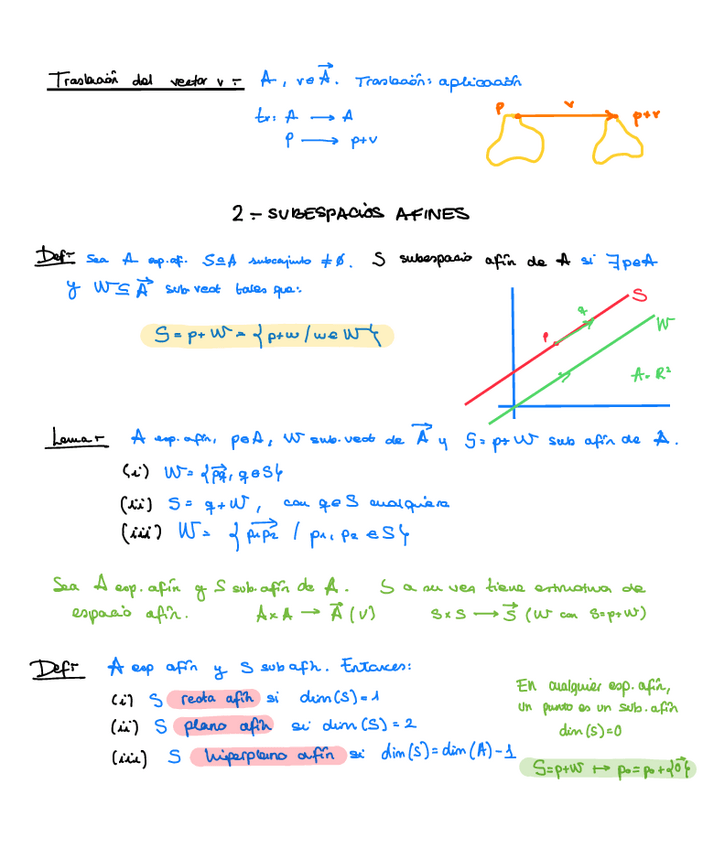 Traslación del vector v :- A, v∈A⃗. Traslación: aplicación
tv: A → A
p → p+v
p v p+v
2.- SUBESPACIOS AFINES
Def:- Sea A esp. af. S⊆A subconjunto ≠ ∅. S subespacio afín de A si ∃p∈A
y W⊆A⃗ sub vect tales que:
S = p+W = {p+w / w∈W}
S
p q
W
A=R²
Lema:- A esp. afín, p∈A, W sub. vect de A⃗ y S=p+W sub afín de A.
(i) W = {pq⃗, q∈S}
(ii) S = q+W, con q∈S cualquiera
(iii) W = {p1p2⃗ / p1, p2 ∈ S}
Sea A esp. afín y S sub. afín de A. S a su vez tiene estructura de
espacio afín. A×A → A⃗ (V) S×S → S⃗ (W con S=p+W)
Def:- A esp afín y S sub afín. Entonces:
(i) S recta afín si dim(S)=1
(ii) S plano afín si dim(S)=2
(iii) S hiperplano afín si dim(S)=dim(A)-1
En cualquier esp. afín,
un punto es un sub. afín
dim(S)=0
S=p+W ↦ p0=p0+{0⃗}